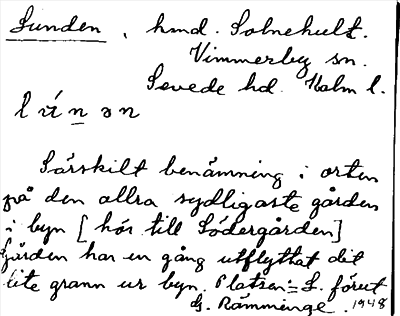 Lunden, hmd. Solnehult.
Vimmerby sn.
Sevede hd. Kalm l.
lún̲ən
Särskilt benämning i orten
på den allra sydligaste gården
i byn [hör till Södergården]
Gården har en gång utflyttat dit
lite grann ur byn. Platsen = L. förut
G. Rämminge. 1948